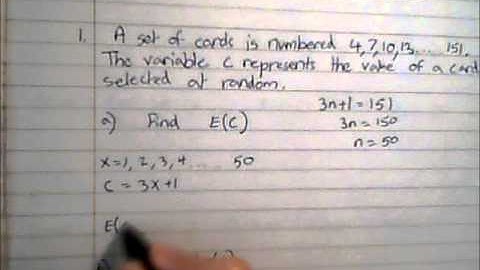 1. A set of cards is numbered 4,7,10,13... 151.
The variable c represents the value of a card
selected at random.
3n+1=151
3n=150
n=50
a) Find E(C)
x=1, 2, 3, 4.... 50
C = 3x+1
E(